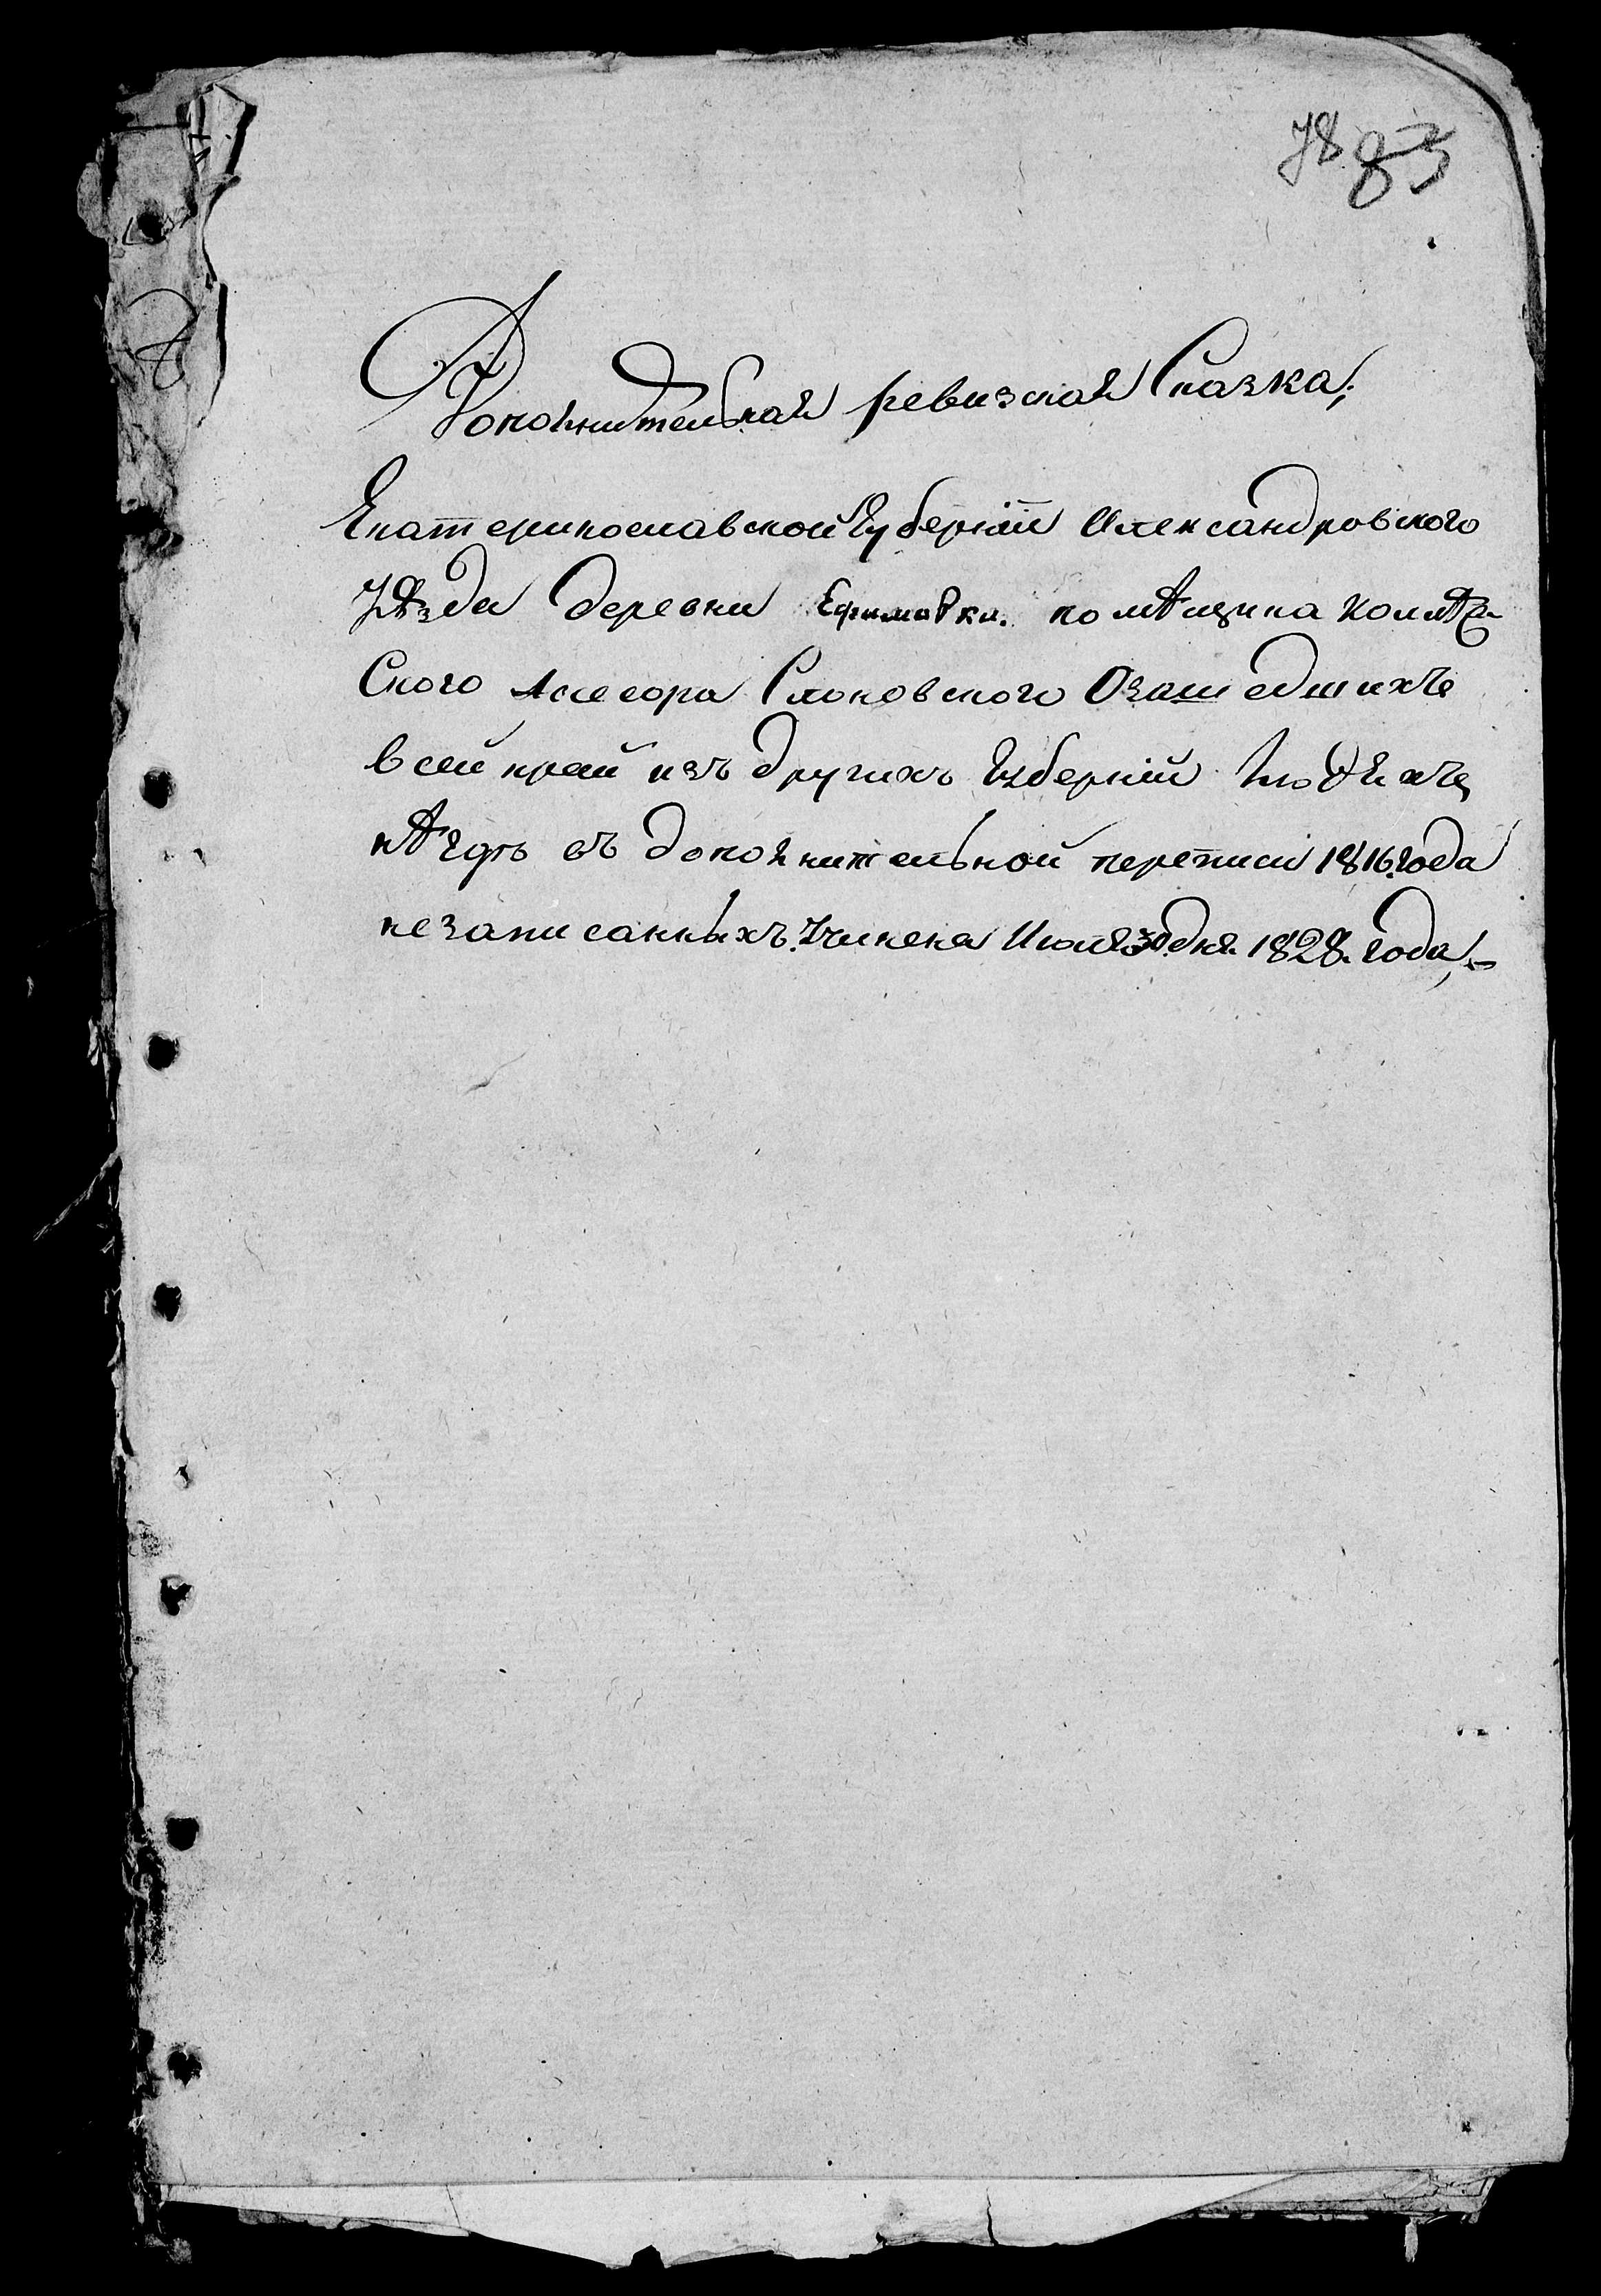 78 83
Дополнительная ревизская Сказка;
Екатеринославской Губернiи Александровского
Уѣзда деревни Ефимовки. помѣщика Колѣж
Ского Асесора Слоновского Озашедшихъ
всей край изъ другихъ Губернiй людяхъ
нѣгдѣ въ дополнительной переписи 1816. года
незаписанныхъ. Учинена Июля 30. дня 1828. года,